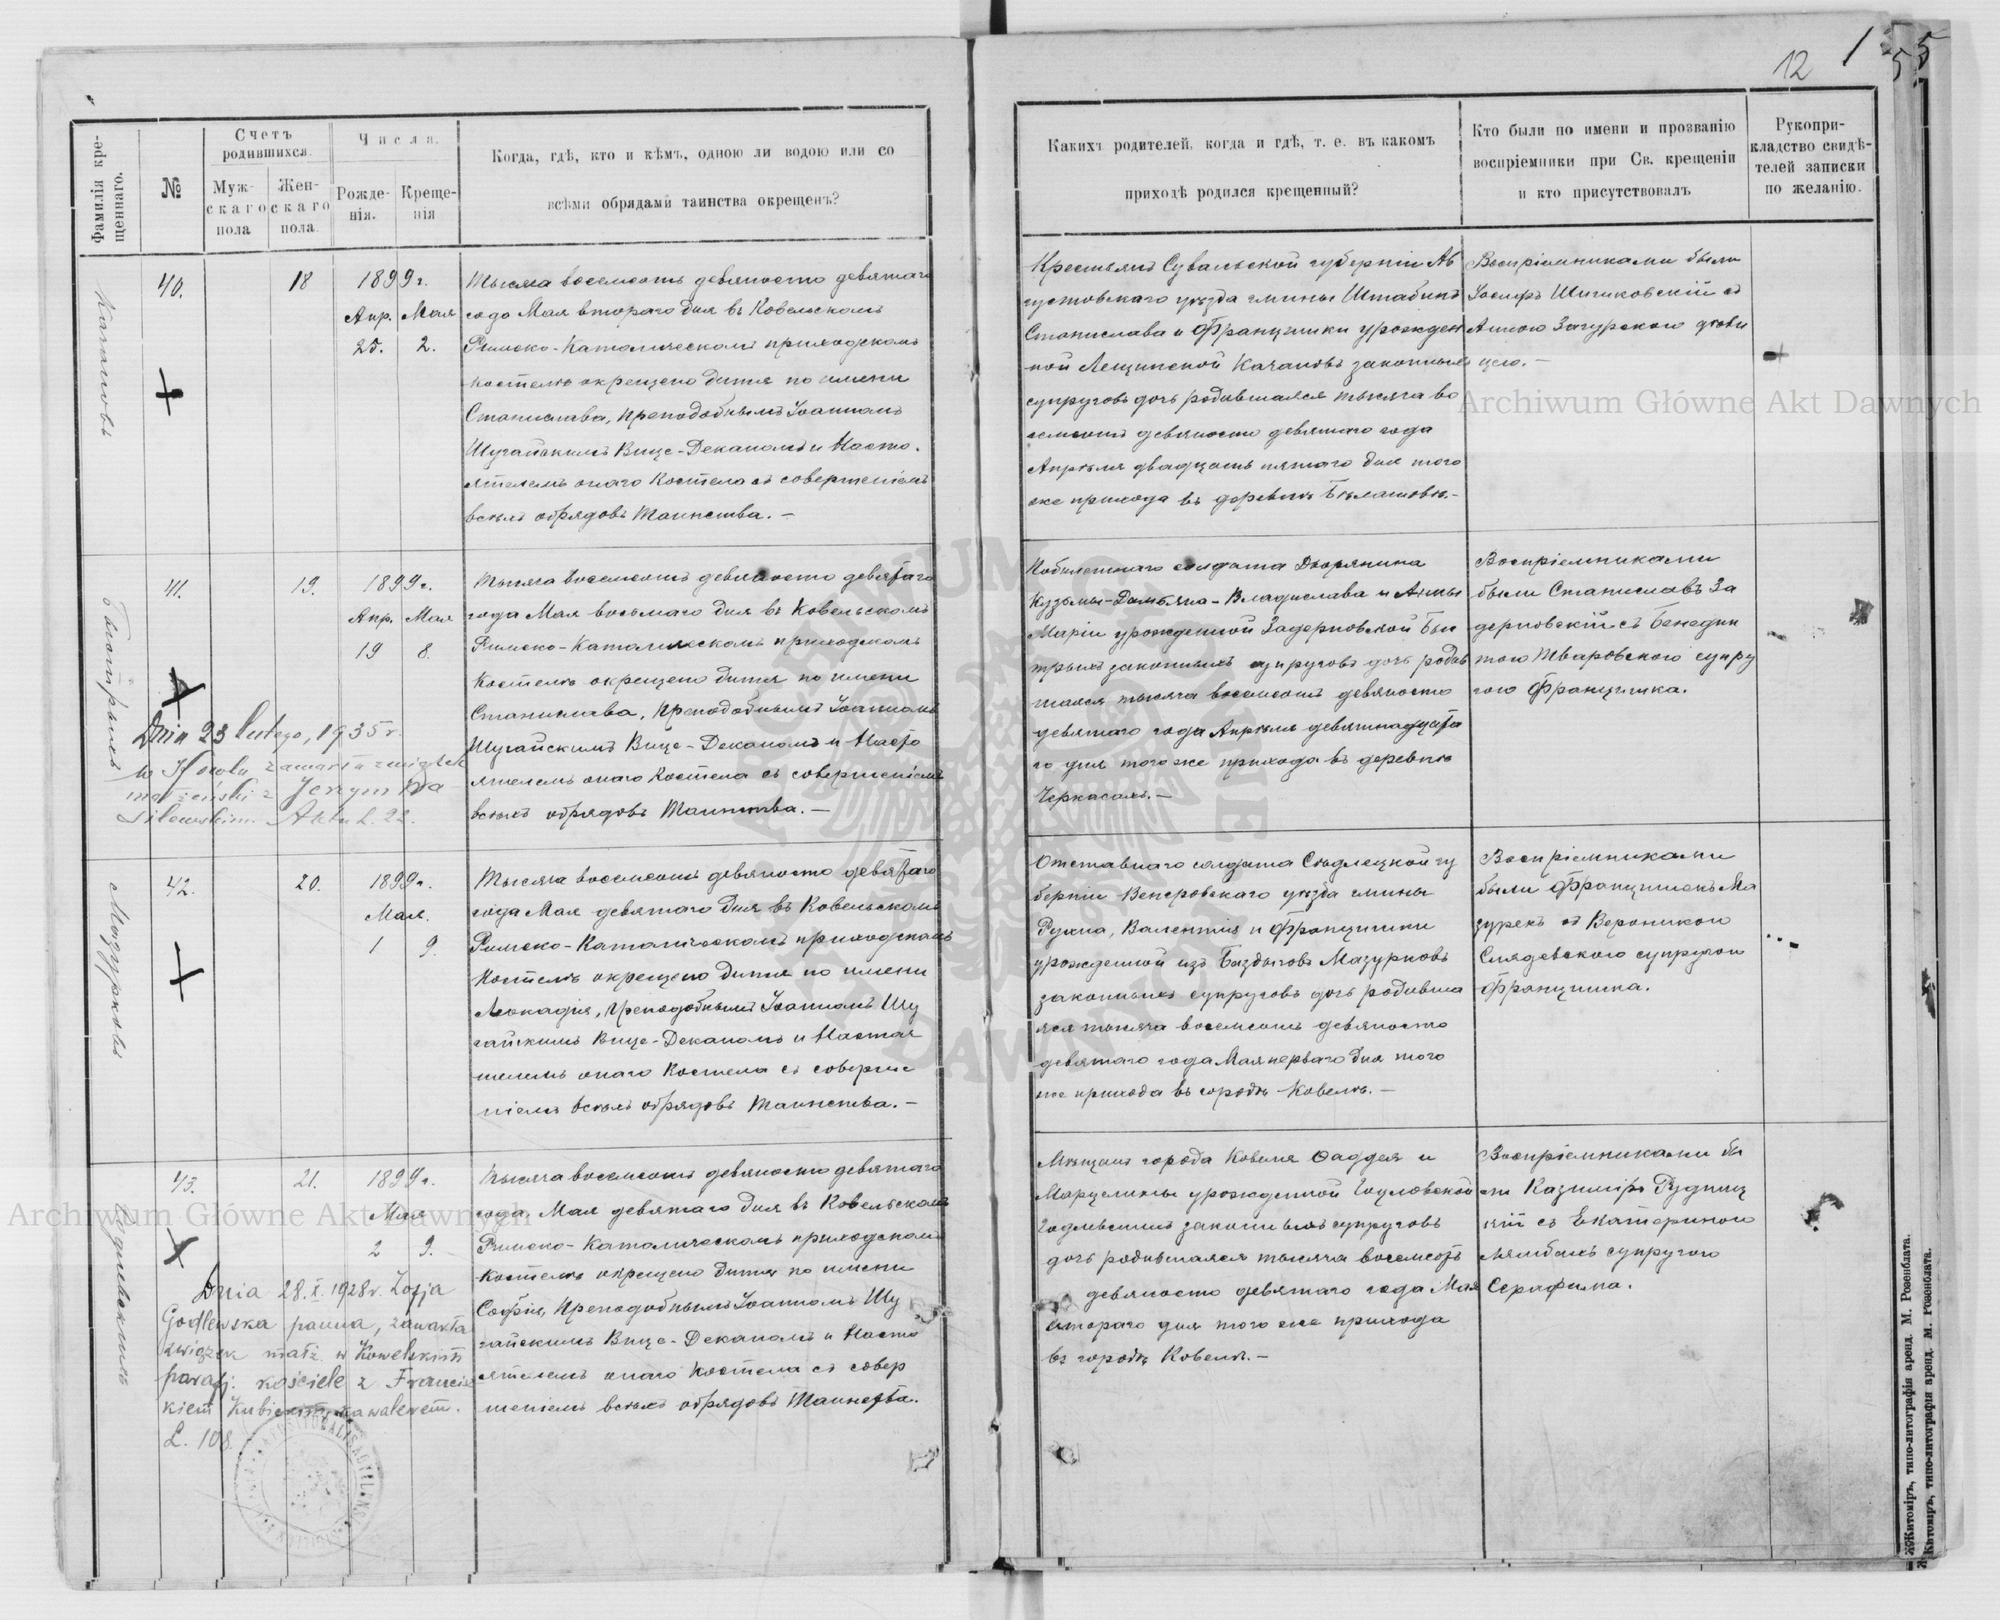 12
1
55
Фамилія кре-
щеннаго.
№
Счетъ
родившихся.
Муж-
скаго
пола
Жен-
скаго
пола.
Числа.
Рожде-
нія.
Креще-
нія
Когда, гдѣ, кто и кѣмъ, одною ли водою или со
всѣми обрядами таинства окрещенъ?
Какихъ родителей, когда и гдѣ, т. е. въ какомъ
приходѣ родился крещенный?
Кто были по имени и прозванію
воспріемники при Св. крещеніи
и кто присутствовалъ
Рукопри-
кладство свидѣ-
телей записки
по желанію.
40.
18
1899 г.
Апр. Мая
25. 2.
Тысяча восемсотъ девяносто девятаго
года Мая втораго дня въ Ковельскомъ
Римско-Католическомъ приходскомъ
костелѣ окрещено дитя по имени
Станислава, Преподобнымъ Іоанномъ
Шугайскимъ Вице-Деканомъ и Насто-
ятелемъ онаго Костела съ совершеніемъ
всѣхъ обрядовъ Таинства. —
Крестьянъ Сувальской губерніи Ав
густовскаго уѣзда гмины Штабинъ
Станислава и Францишки урожден
ной Лещинской Качановъ законныхъ
супруговъ дочь родившаяся тысяча во
семсотъ девяносто девятаго года
Апрѣля двадцать пятаго дня того
же прихода въ деревнѣ
Воспріемниками были
Іосифъ съ
Анною Загурскою
цею. —
41.
19.
1899 г.
Апр. Мая
19 8.
Тысяча восемсотъ девяносто девятаго
года Мая восьмаго дня въ Ковельскомъ
Римско-Католическомъ приходскомъ
Костелѣ окрещено дитя по имени
Станислава, Преподобнымъ Іоанномъ
Шугайскимъ Вице-Деканомъ и Насто
ятелемъ онаго Костела съ совершеніемъ
всѣхъ обрядовъ Таинства. —
солдата Дворянина
Кузьмы-Дамьяна-Владислава и Анны
Маріи урожденной Задерновской Быс
трыхъ законныхъ супруговъ дочь родив
шаяся тысяча восемсотъ девяносто
девятаго года Апрѣля девятнадцата
го дня того же прихода въ деревнѣ
Черкасахъ. —
Воспріемниками
были Станиславъ За
дерновскій съ Бенедик
тою Тваровского супру
гою Францишка.
Dnia 23 lutego, 1935 r.
w Kowlu zawarła związek
małżeński z Jerzym Wa-
silewskim. Akt L. 22.
42.
20.
1899 г.
Мая.
1 9.
Мазурковъ
Тысяча восемсотъ девяносто девятаго
года Мая девятаго дня въ Ковельскомъ
Римско-Католическомъ приходскомъ
Костелѣ окрещено дитя по имени
Леокадія, Преподобнымъ Іоанномъ Шу
гайскимъ Вице-Деканомъ и Настоя
телемъ онаго Костела съ соверше
ніемъ всѣхъ обрядовъ Таинства. —
Отставнаго солдата Сѣдлецкой гу
берніи Венгровскаго уѣзда гмины
Рухна, Валентія и Францишки
урожденной изъ Баздыговъ Мазурковъ
законныхъ супруговъ дочь родивша
яся тысяча восемсотъ девяносто
девятаго года Мая перваго дня того
же прихода въ городѣ Ковелѣ. —
Воспріемниками
были Францишекъ Ма
зурекъ съ Вероникою
супругою
Францишка.
43.
21.
1899 г.
Мая
2 9.
Тысяча восемсотъ девяносто девятаго
года Мая девятаго дня въ Ковельскомъ
Римско-Католическомъ приходскомъ
Костелѣ окрещено дитя по имени
Софія, Преподобнымъ Іоанномъ Шу
гайскимъ Вице-Деканомъ и Насто
ятелемъ онаго Костела съ совер
шеніемъ всѣхъ обрядовъ Таинства.
Мѣщанъ города Ковеля Фаддея и
Марцелины урожденной
Годлевскихъ законныхъ супруговъ
дочь родившаяся тысяча восемсотъ
девяносто девятаго года Мая
втораго дня того же прихода
въ городѣ Ковелѣ. —
Воспріемниками бы
ли Казиміръ Рудниц
кій съ Екатериною
супругою
Серафима.
Dnia 28.X.1928 r. Zofja
Godlewska panna, zawarła
związek małż. w Kowelskim
paraf. kościele z Francisz
kiem kawalerem.
L. 108
Archiwum Główne Akt Dawnych
Archiwum Główne Akt Dawnych
Житоміръ, типо-литографія аренд. М. Розенблата.
Житоміръ, типо-литографія аренд. М. Розенблата.